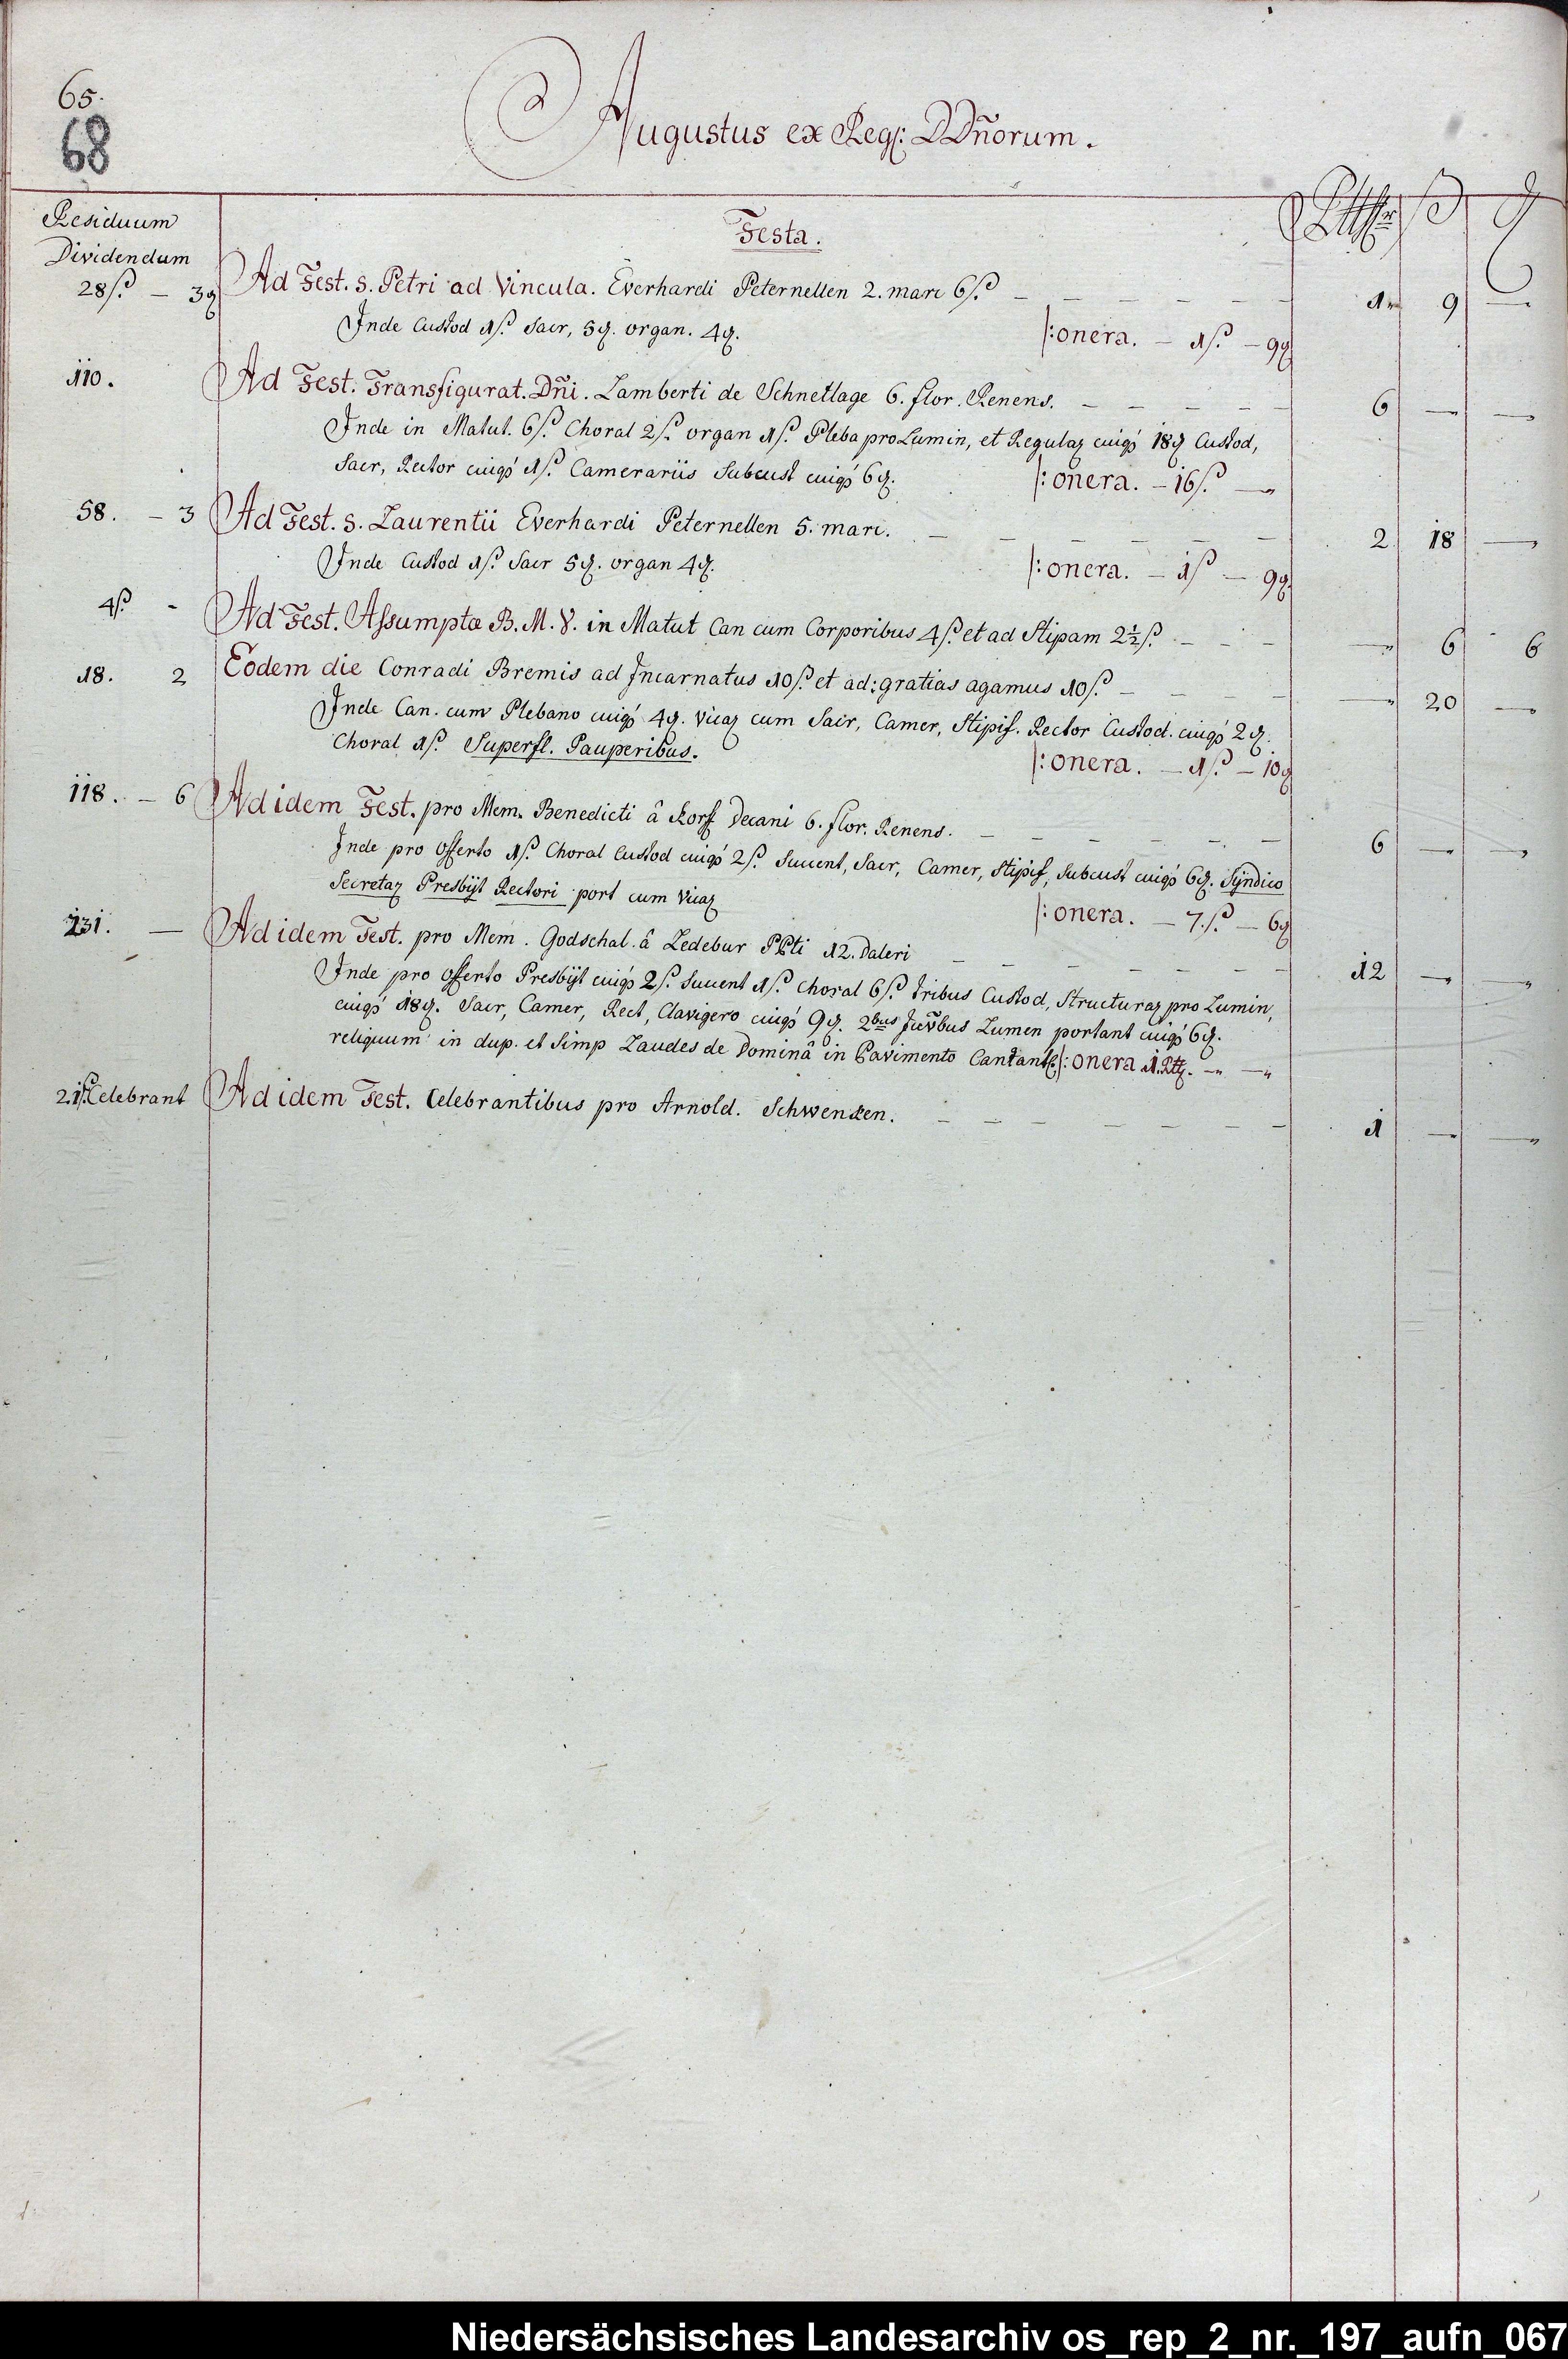 65.
68
Augustus ex Reg: DDñorum.
Residuum
Dividendum
Festa.
28 ß. — 3 ₰ Ad Fest. S. Petri ad Vincula. Everhardi Peternellen 2. marc 6 ß. — — — — — — 1 9 —
Inde Custod 1 ß. Sacr, 5 ₰. organ. 4 ₰. |: onera. — 1 ß. — 9 ₰
110. Ad Fest. Transfigurat. Dñi. Lamberti de Schnetlage 6. flor. Renens. — — — — — 6 — —
Inde in Matut. 6 ß. Choral 2 ß. organ 1 ß. Pleba pro Lumin, et Regular cuiq́ 18 ₰ Custod,
Sacr, Rector cuiq́ 1 ß. Camerariis Subcust cuiq́ 6 ₰. |: onera. — 16 ß. —
58. — 3 Ad Fest. S. Laurentii Everhardi Peternellen 5. marc. — — — — — — 2 18 —
Inde Custod 1 ß. Sacr 5 ₰. organ 4 ₰. |: onera. — 1 ß — 9 ₰.
4 ß. - Ad Fest. Assumptæ B. M. V. in Matut Can cum Corporibus 4 ß. et ad Stipam 2½ ß. — — — — 6 6
18. 2 Eodem die Conradi Bremis ad Incarnatus 10 ß. et ad: gratias agamus 10 ß. — — — — — 20 —
Inde Can. cum Plebano cuiq́ 4 ₰. Vicar cum Sacr, Camer, Stipif. Rector Custod. cuiq́ 2 ₰.
Choral 1 ß. Superfl. Pauperibus. |: onera. — 1 ß. — 10 ₰
118. — 6 Ad idem Fest. pro Mem. Benedicti â Korff Decani 6. flor. Renens. — — — — — — 6 — —
Inde pro offerto 1 ß. Choral Custod cuiq́ 2 ß. Succent, Sacr, Camer, Stipif, Subcust cuiq́ 6 ₰. Syndico
Secretar Presbyt Rectori port cum Vicar |: onera. — 7. ß. — 6 ₰
231. — Ad idem Fest. pro Mem. Godschal. â Ledebur PPti 12. Daleri — — — — — — — 12 — —
Inde pro offerto Presbyt cuiq́ 2 ß. Succent 1 ß. Choral 6 ß. tribus Custod, Structurar pro Lumin,
cuiq́ 18 ₰. Sacr, Camer, Rect, Clavigero cuiq́ 9 ₰. 2bus Juvbus Lumen portant cuiq́ 6 ₰.
reliquum in dup. et Simp Laudes de Dominâ in Pavimento Cantant. |: onera 1. Rtlr. — —
21 ß. Celebrant Ad idem Fest. Celebrantibus pro Arnold. Schwenken. — — — — — — — 1 — —
Niedersächsisches Landesarchiv os_rep_2_nr._197_aufn_067